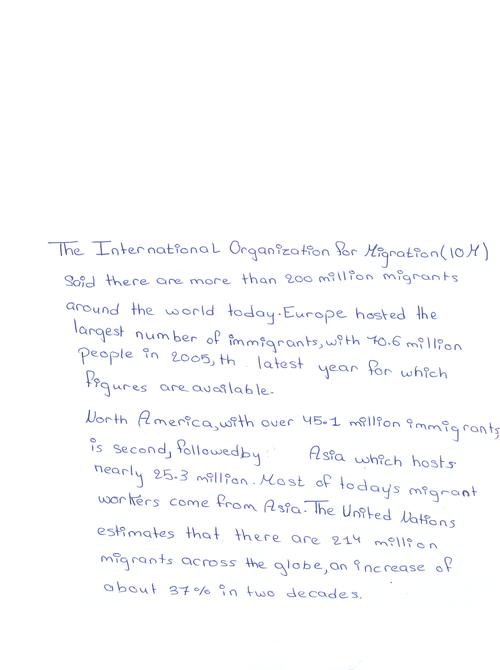 The International Organization for Migration(IOM)
Said there are more than 200 million migrants
around the world today.Europe hosted the
largest number of immigrants,with 70.6 million
people in 2005,th. latest year for which
figures are available.
North America,with over 45.1 million immigrants
is second,followedby Asia which hosts
nearly 25.3 million.Most of today's migrant
workers come from Asia.The United Nations
estimates that there are 214 million
migrants across the globe,an increase of
about 37% in two decades.